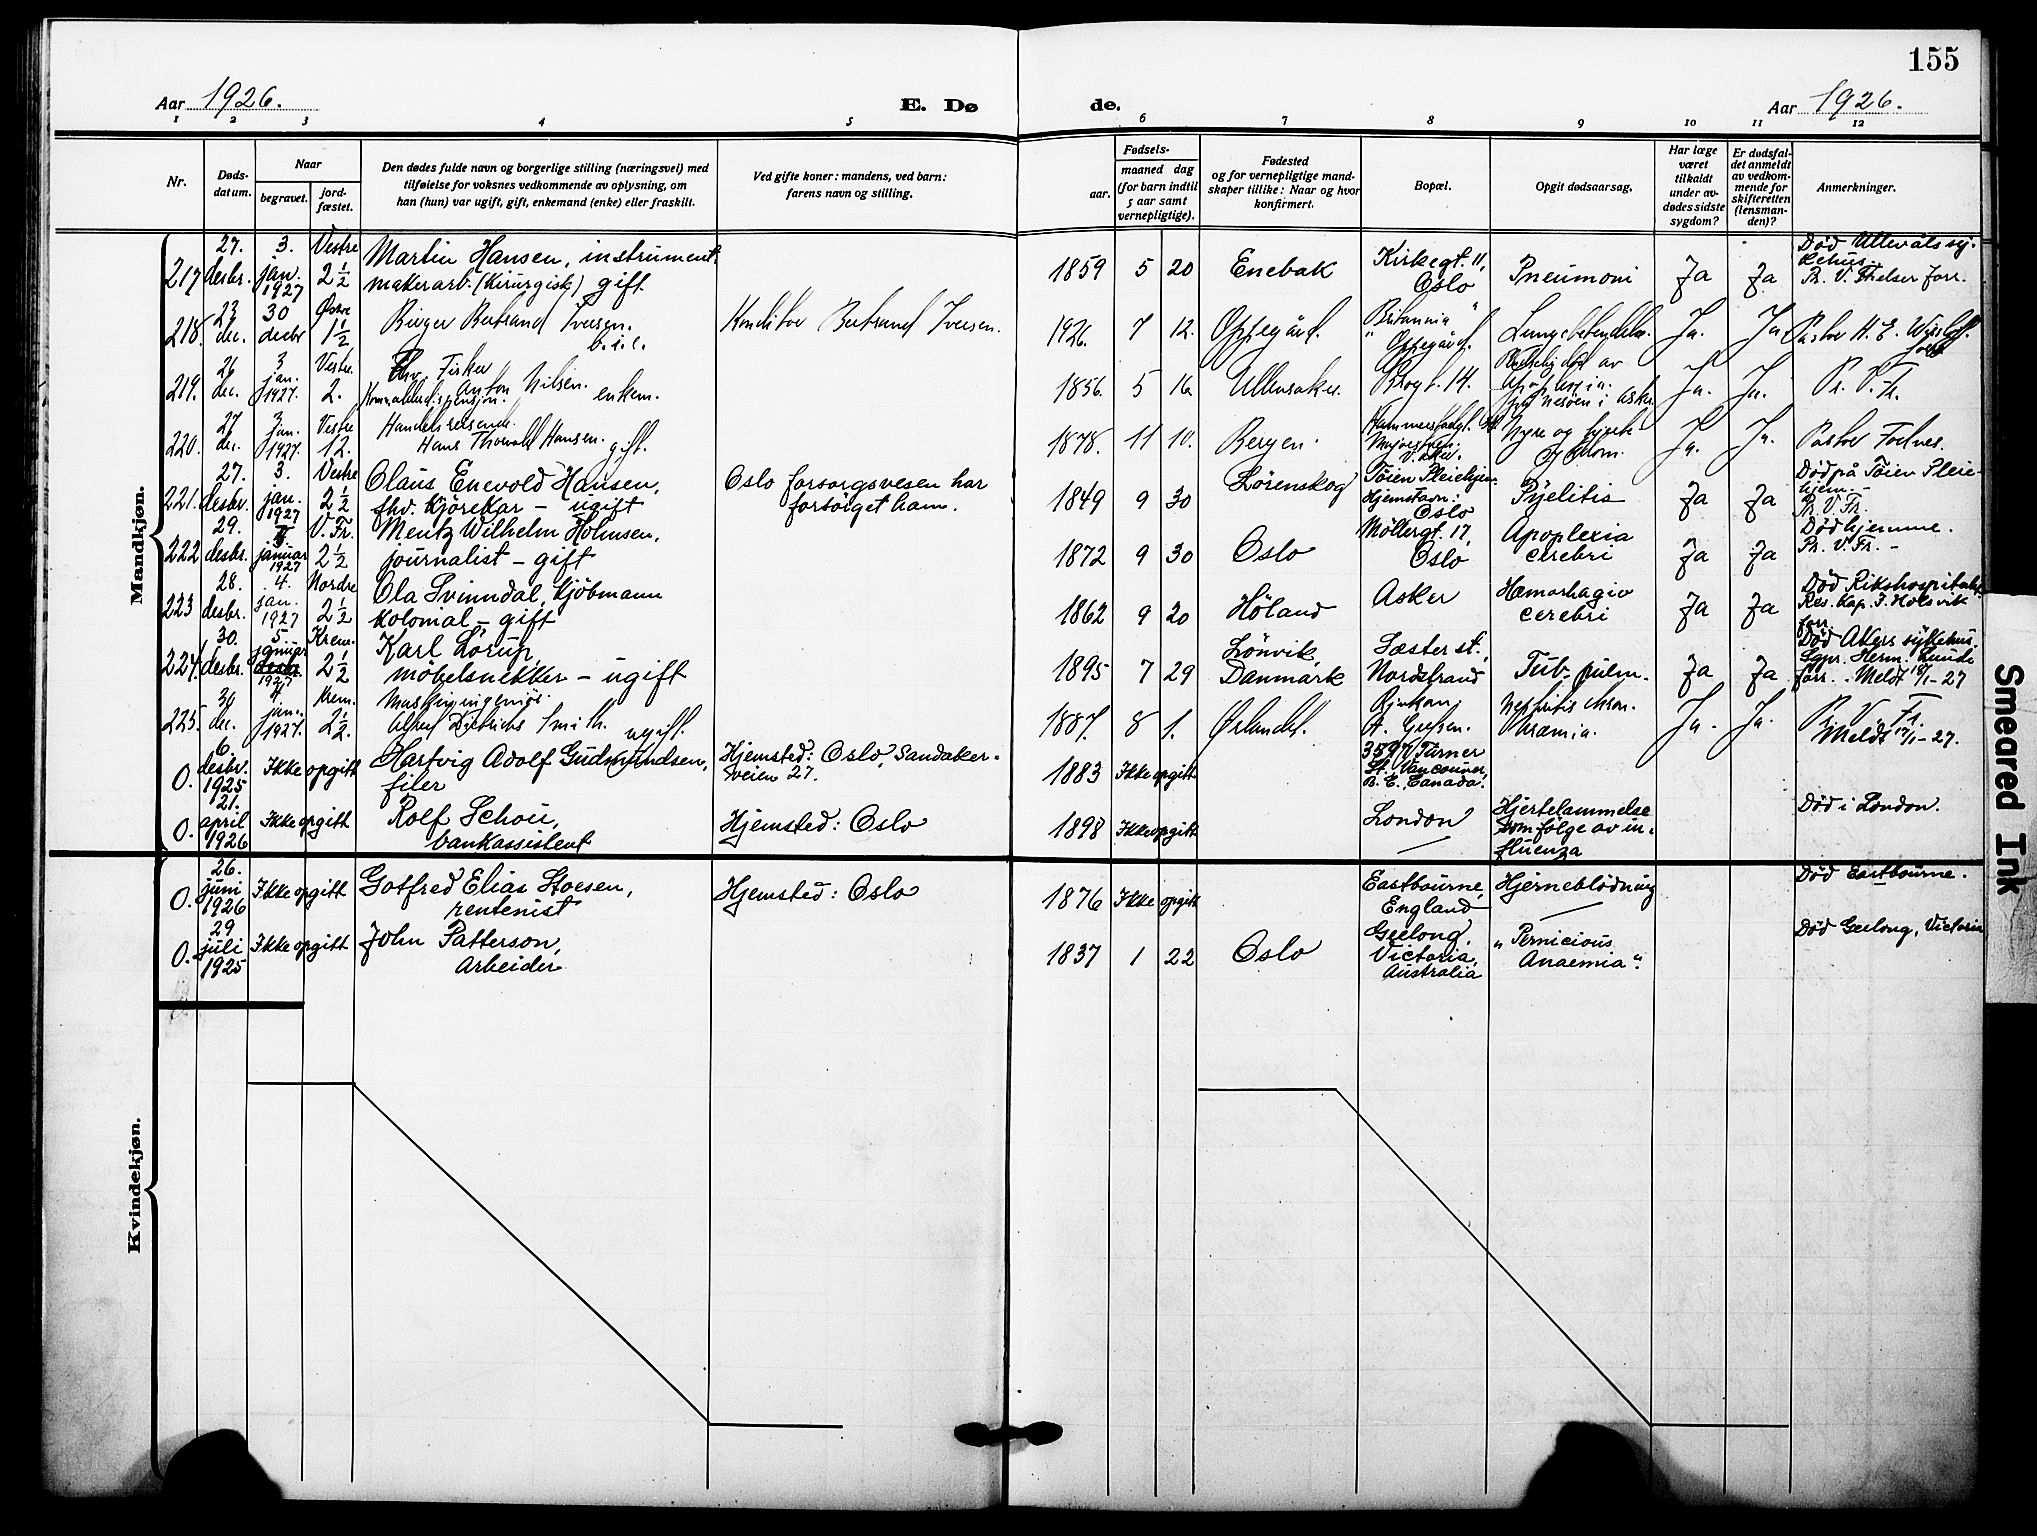 155
Aar 1926.
E. Dø
de.
Aar 1926.
1 2 3 4 5 6 7 8 9 10 11 12
Nr.
Døds-
datum.
Naar
begravet.
jord-
fæstet.
Den dødes fulde navn og borgerlige stilling (næringsvei) med
tilføielse for voksnes vedkommende av oplysning, om
han (hun) var ugift, gift, enkemand (enke) eller fraskilt.
Ved gifte koner: mandens, ved barn:
farens navn og stilling.
Fødsels-
aar.
maaned dag
(for barn indtil
5 aar samt
vernepligtige).
Fødested
og for vernepligtige mand-
skaper tillike: Naar og hvor
konfirmert.
Bopæl.
Opgit dødsaarsag.
Har læge
været
tilkaldt
under av-
dødes sidste
sygdom?
Er dødsfal-
det anmeldt
av vedkom-
mende for
skifteretten
(lensman-
den)?
Anmerkninger.
Mandkjøn.
217
27.
desbr.
3.
jan.
1927
Vestre
2 1/2
Martin Hansen, instrument-
makerarb. (kirurgisk) gift
1859 5 20
Enebak
Kirkegt. 11,
Oslo
Pneumoni
Ja
Ja
Død Ullevåls sy-
kehus.
Pr. V. Thelser forr.
218.
23
dec.
30
desbr
Østre
1 1/2
Birger Bertrand Iversen.
Konditor Bertrand Iversen.
1926. 7 12.
Oppegård.
"Britannia"
Oppegård.
Ja.
Ja.
Pastor H. E.
219.
26
dec.
3
jan.
1927.
Vestre.
2.
Fhv. Fisker
Anton Nilsen. enkem.
1856. 5 16
Ullensaker.
14.
av
Apoplexia.
på Nesøen i Asker
Ja.
Ja.
Pr. V. Fr.
220.
27
dec.
3
jan.
1927.
Vestre
12.
Handelsreisende
Hans Thorvald Hansen. gift.
1878. 11 10.
Bergen.
Nyre og hjerte-
sykdom.
Ja.
Ja.
Pastor
221.
27.
desbr.
3.
jan.
1927
Vestre
2 1/2
Olaus Enevold Hansen,
fhv. kjørekar – ugift
Oslo forsorgsvesen har
forsørget ham.
1849 9 30
Lørenskog
Tøien Pleiehjem.
Hjemstavn:
Oslo
Pyelitis
Ja
Ja
Død på Tøien Pleie-
hjem –
Pr. V. Fr.
222
29.
desbr.
januar
1927
V. Fr.
2 1/2
Mentz Wilhelm Holmsen,
journalist – gift
1872 9 30
Oslo
Møllergt. 17,
Oslo
Apoplexia
cerebri
Ja
Ja
Død hjemme.
Pr. V. Fr. –
223
28.
desbr.
4.
jan.
1927
Nordre
2 1/2
Ola Svinndal, kjøbmann
kolonial – gift
1862 9 20
Høland
Asker
Hæmorhagia
cerebri
Ja
Ja
Død Rikshospitalet
Res. kap. J. Holsvik
forr.
224.
30.
desbr.
5.
januar
desbr
1927
Krem.
2 1/2
Karl Lörup,
møbelsnekker – ugift
1895 7 29
Lönvik,
Danmark
Sæter st.,
Nordstrand
Tub. pulm.
Ja
Ja
Død Akers sykehus.
Sgpr. Herm. Lunde
forr. – Meldt 18/1-27
225.
dec.
jan.
1927.
Krem.
2 1/2.
Maskiningeniør
Alfred Dietrichs Smith. ugift.
1887. 8 1.
Ørlandet.
Rjukan,
Nephritis chron.
Uræmia.
Ja.
Ja.
Pr. V. Fr.
Meldt 17/1-27.
0.
6.
desbr.
1925
Ikke opgitt
Hartvig Adolf Gudmundsen,
filer
Hjemsted: Oslo, Sandaker-
veien 27.
1883 Ikke opgitt
3597 Turner
St., Vancouver,
B. C., Canada.
0.
21.
april
1926
Ikke opgitt
Rolf Schou,
bankassistent
Hjemsted: Oslo
1898 Ikke opgitt
London
Hjertelammelse
som følge av in-
fluenza
Død i London.
0.
26.
juni
1926
Ikke opgitt
Gotfred Elias Stoesen,
rentenist
Hjemsted: Oslo
1876 Ikke opgitt
Eastbourne,
England
Hjerneblødning
Død Eastbourne.
0.
29
juli
1925
Ikke opgitt
John Patterson,
Arbeider
1837 1 22
Oslo
Geelong,
Victoria,
Australia
"Pernicious
Anaemia".
Død Geelong, Victoria
Kvindekjøn.
Smeared Ink